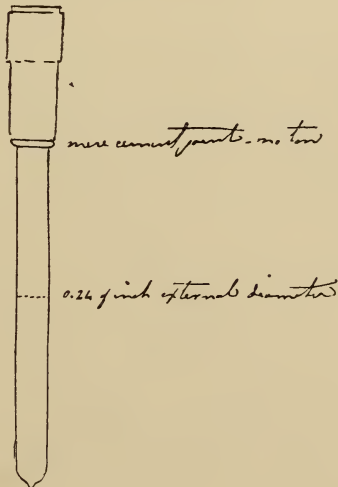 mere cement joint - no
0.24 of inch external diameter